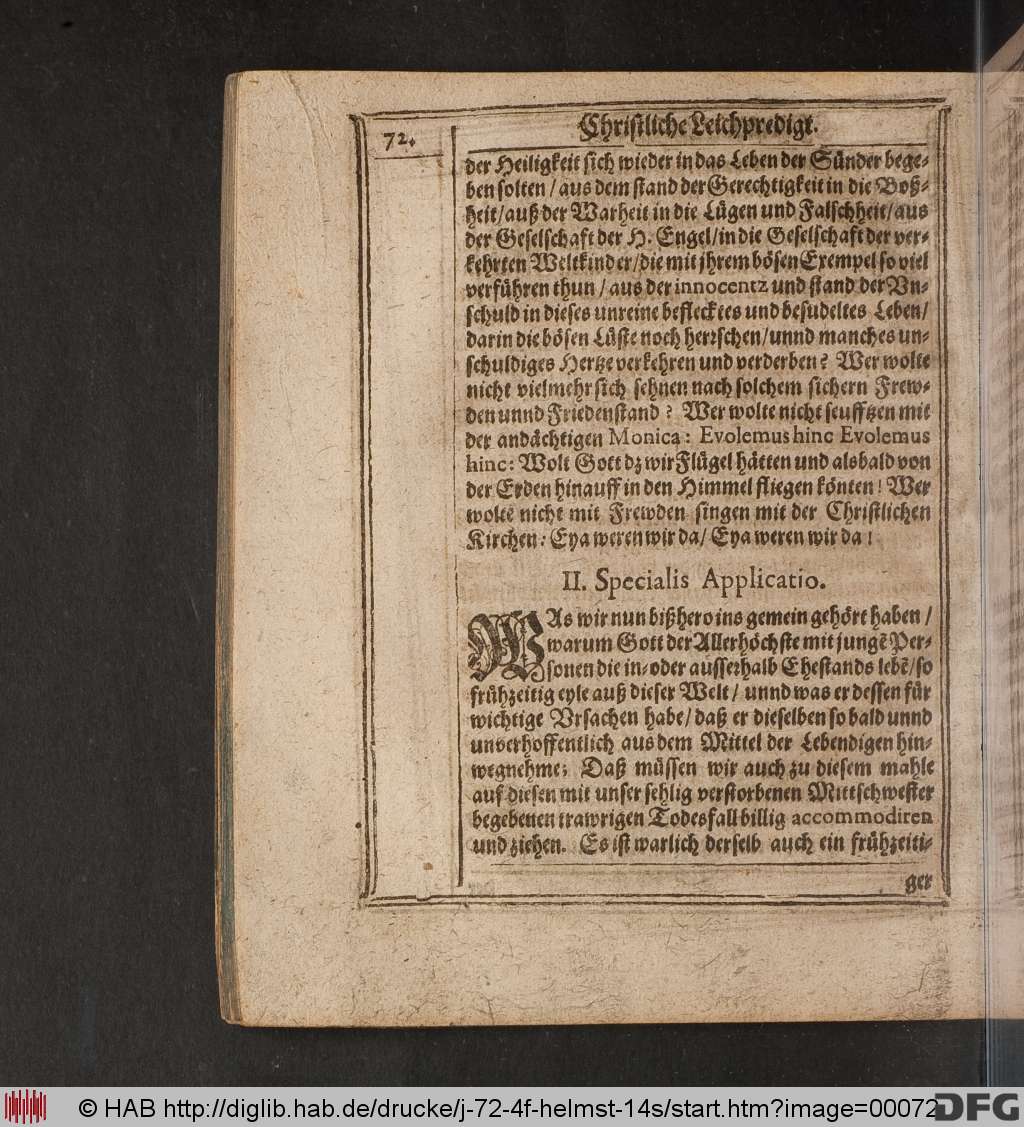 72.
Christliche Leichpredigt.
der Heiligkeit sich wieder in das Leben der Sünder bege-
ben solten / aus dem stand der Gerechtigkeit in die Boß-
heit / auß der Warheit in die Lügen und Falschheit / aus
der Geselschaft der H. Engel / in die Geselschaft der ver-
kehrten Weltkinder / die mit jhrem bösen Exempel so viel
verführen thun / aus der innocentz und stand der Vn-
schuld in dieses unreine beflecktes und besudeltes Leben /
darin die bösen Lüste noch herrschen / unnd manches un-
schuldiges Hertze verkehren und verderben? Wer wolte
nicht vielmehr sich sehnen nach solchem sichern Frew-
den unnd Friedenstand? Wer wolte nicht seufftzen mit
der andächtigen Monica: Evolemus hinc Evolemus
hinc: Wolt Gott dz wir Flügel hätten und alsbald von
der Erden hinauff in den Himmel fliegen könten! Wer
wolte nicht mit Frewden singen mit der Christlichen
Kirchen: Eya weren wir da / Eya weren wir da!
II. Specialis Applicatio.
WAs wir nun bißhero ins gemein gehört haben /
warum Gott der Allerhöchste mit jungē Per-
sonen die in- oder ausserhalb Ehestands lebē / so
frühzeitig eyle auß dieser Welt / unnd was er dessen für
wichtige Vrsachen habe / daß er dieselben so bald unnd
unverhoffentlich aus dem Mittel der Lebendigen hin-
wegnehme; Daß müssen wir auch zu diesem mahle
auf diesen mit unser sehlig verstorbenen Mittschwester
begebenen trawrigen Todesfall billig accommodiren
und ziehen. Es ist warlich derselb auch ein frühzeiti-
ger
© HAB http://diglib.hab.de/drucke/j-72-4f-helmst-14s/start.htm?image=00072
DFG